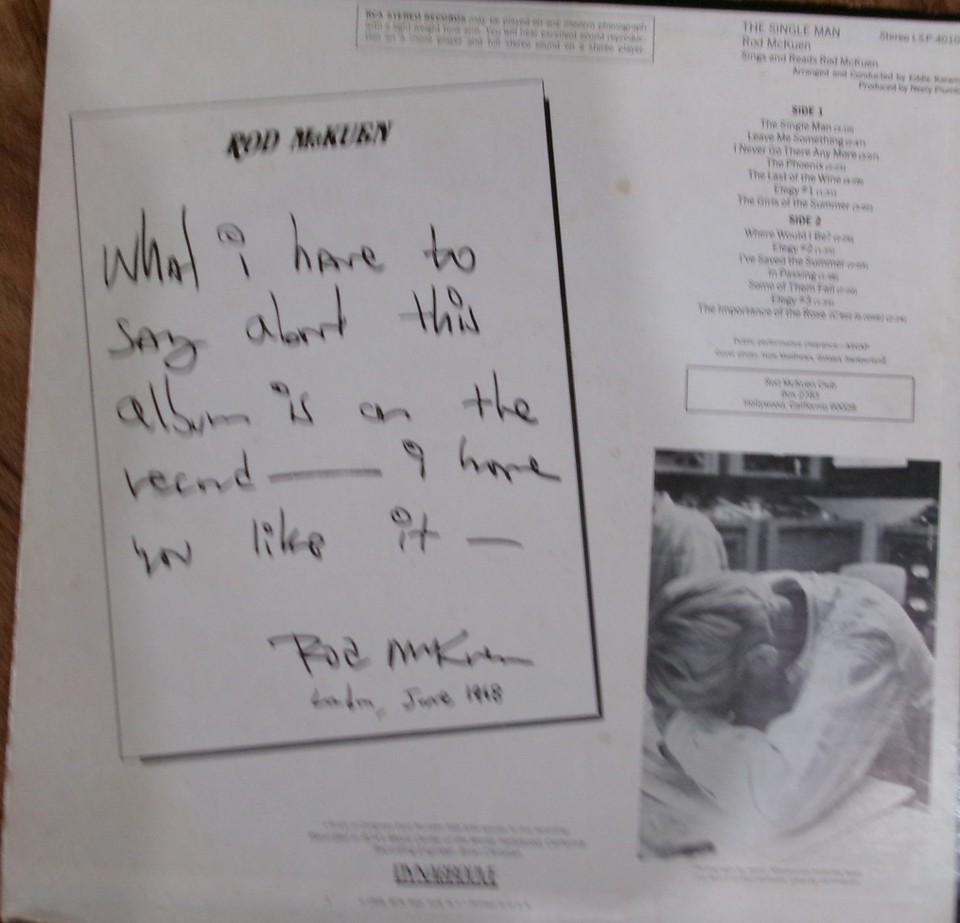 RCA STEREO RECORDS may be played on any modern phonograph
with a light weight tone arm. You will hear excellent sound reproduc-
tion on a mono player and full stereo sound on a stereo player.
THE SINGLE MAN
Stereo LSP-4010
Rod McKuen
Sings and Reads Rod McKuen
Arranged and Conducted by Eddie
Produced by Neely
SIDE 1
The Single Man
Leave Me Something
I Never Go There Any More
The Phoenix
The Last of the Wine
Elegy #1
The Girls of the Summer
SIDE 2
Where Would I Be?
Elegy #2
I've Saved the Summer
In Passing
Some of Them Fall
Elegy #3
The Importance of the Rose
Rod McKuen Club
Box 2783
Hollywood, California 90028
ROD McKUEN
What i have to
say about this
album is on the
record — I hope
you like it —
Rod McKuen
London, June 1968
DYNAGROOVE